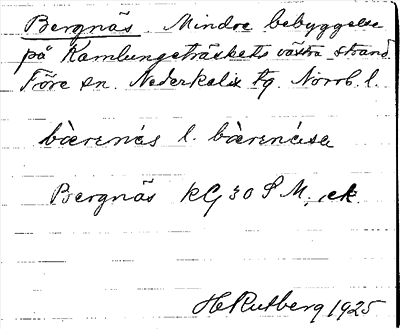 Bergnäs. Mindre bebyggelse
på Kamlungeträskets västra strand
Töre sn. Nederkalix tg. Norrb. l.
bàrenás l. bàrenása
Bergnäs kG 30 S M, ek.
H Rutberg 1925